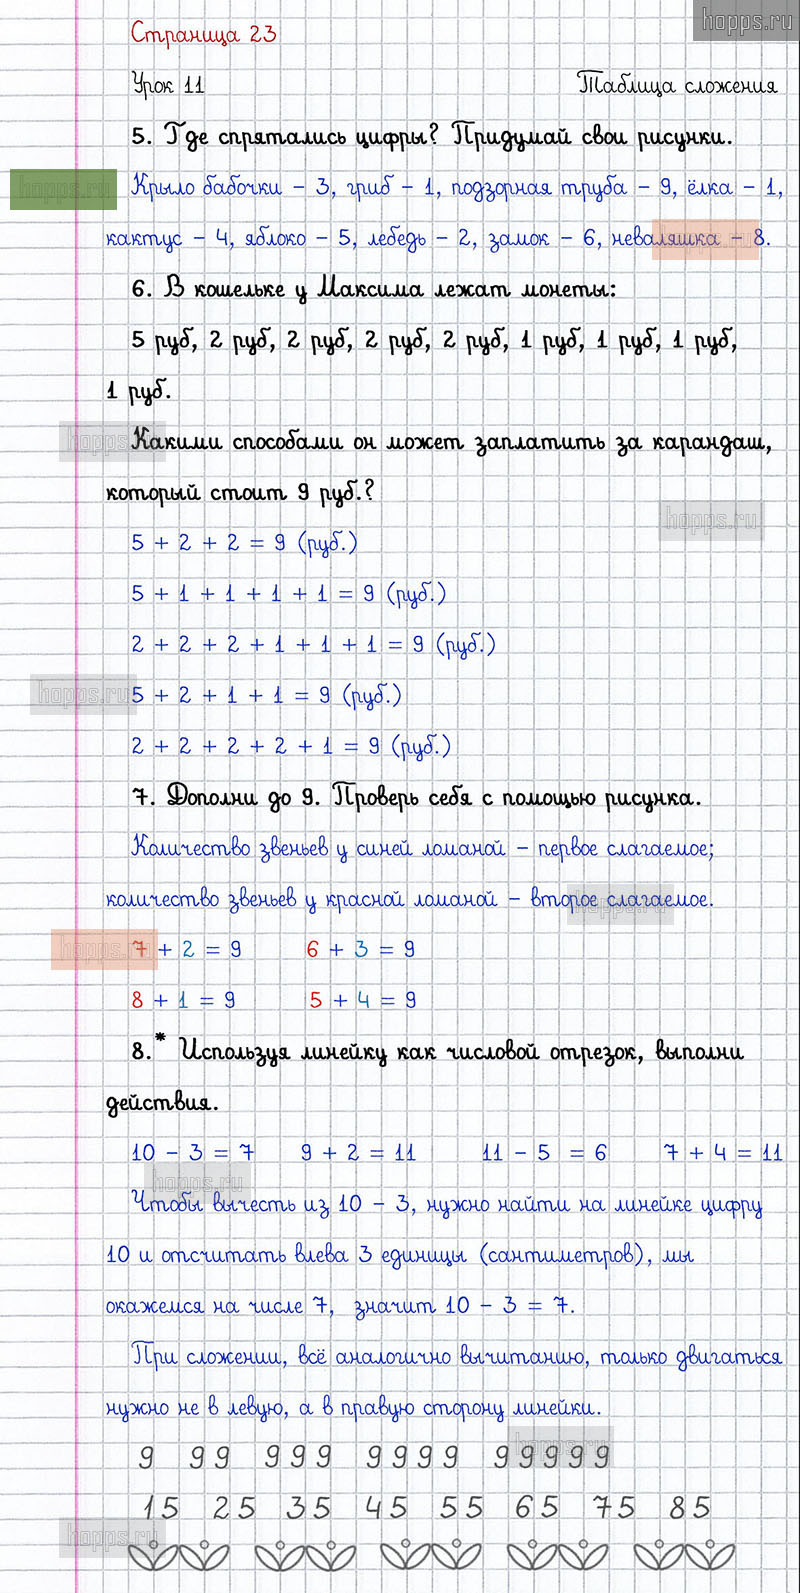 hopps.ru
Страница 23
Урок 11 Таблица сложения
5. Где спрятались цифры? Придумай свои рисунки.
hopps.ru
Крыло бабочки – 3, гриб – 1, подзорная труба – 9, ёлка – 1,
кактус – 4, яблоко – 5, лебедь – 2, замок – 6, неваляшка – 8.
6. В кошельке у Максима лежат монеты:
5 руб, 2 руб, 2 руб, 2 руб, 2 руб, 1 руб, 1 руб, 1 руб,
1 руб.
hopps.ru
Какими способами он может заплатить за карандаш,
который стоит 9 руб.?
hopps.ru
5 + 2 + 2 = 9 (руб.)
5 + 1 + 1 + 1 + 1 = 9 (руб.)
2 + 2 + 2 + 1 + 1 + 1 = 9 (руб.)
hopps.ru
5 + 2 + 1 + 1 = 9 (руб.)
2 + 2 + 2 + 2 + 1 = 9 (руб.)
7. Дополни до 9. Проверь себя с помощью рисунка.
Количество звеньев у синей ломаной – первое слагаемое;
количество звеньев у красной ломаной – второе слагаемое.
hopps.ru
hopps.ru
7 + 2 = 9 6 + 3 = 9
8 + 1 = 9 5 + 4 = 9
8.* Используя линейку как числовой отрезок, выполни
действия.
10 – 3 = 7 9 + 2 = 11 11 – 5 = 6 7 + 4 = 11
hopps.ru
Чтобы вычесть из 10 – 3, нужно найти на линейке цифру
10 и отсчитать влева 3 единицы (сантиметров), мы
окажемся на числе 7, значит 10 – 3 = 7.
При сложении, всё аналогично вычитанию, только двигаться
нужно не в левую, а в правую сторону линейки.
hopps.ru
9 99 999 9999 99999
15 25 35 45 55 65 75 85
hopps.ru